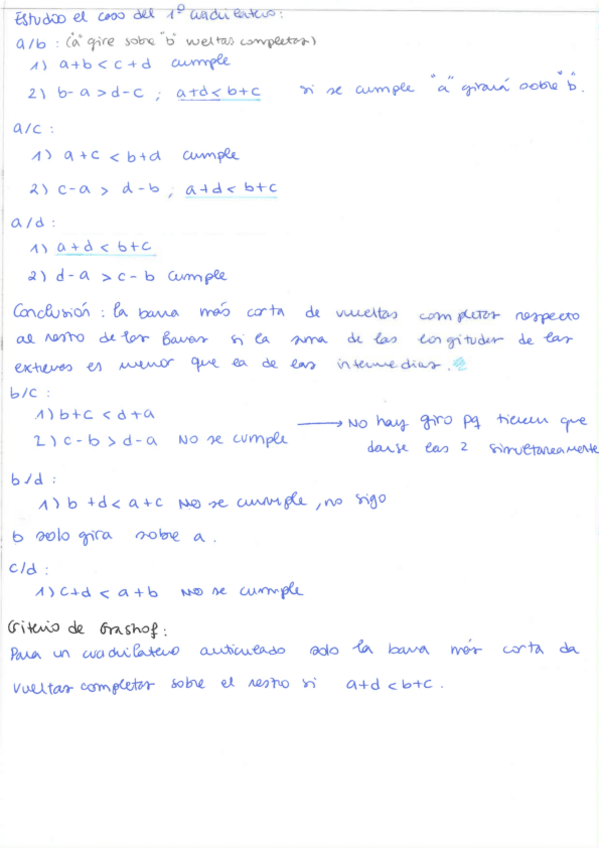 Estudio el caso del 1º cuadrilatero:
a/b : ("a" gire sobre "b" vueltas completas)
1) a+b < c+d cumple
2) b-a > d-c ; a+d < b+c si se cumple "a" girará sobre "b".
a/c :
1) a+c < b+d cumple
2) c-a > d-b , a+d < b+c
a/d :
1) a+d < b+c
2) d-a > c-b cumple
Conclusión : la barra más corta de vueltas completas respecto
al resto de las Barras si la suma de las longitudes de las
extremos es menor que la de las intermedias.
b/c :
1) b+c < d+a
2) c-b > d-a No se cumple → No hay giro pq tienen que
darse las 2 simultaneamente
b/d :
1) b+d < a+c No se cumple, no sigo
b solo gira sobre a.
c/d :
1) c+d < a+b No se cumple
Criterio de Grashof :
Para un cuadrilatero articulado solo la barra más corta da
vueltas completas sobre el resto si a+d < b+c.